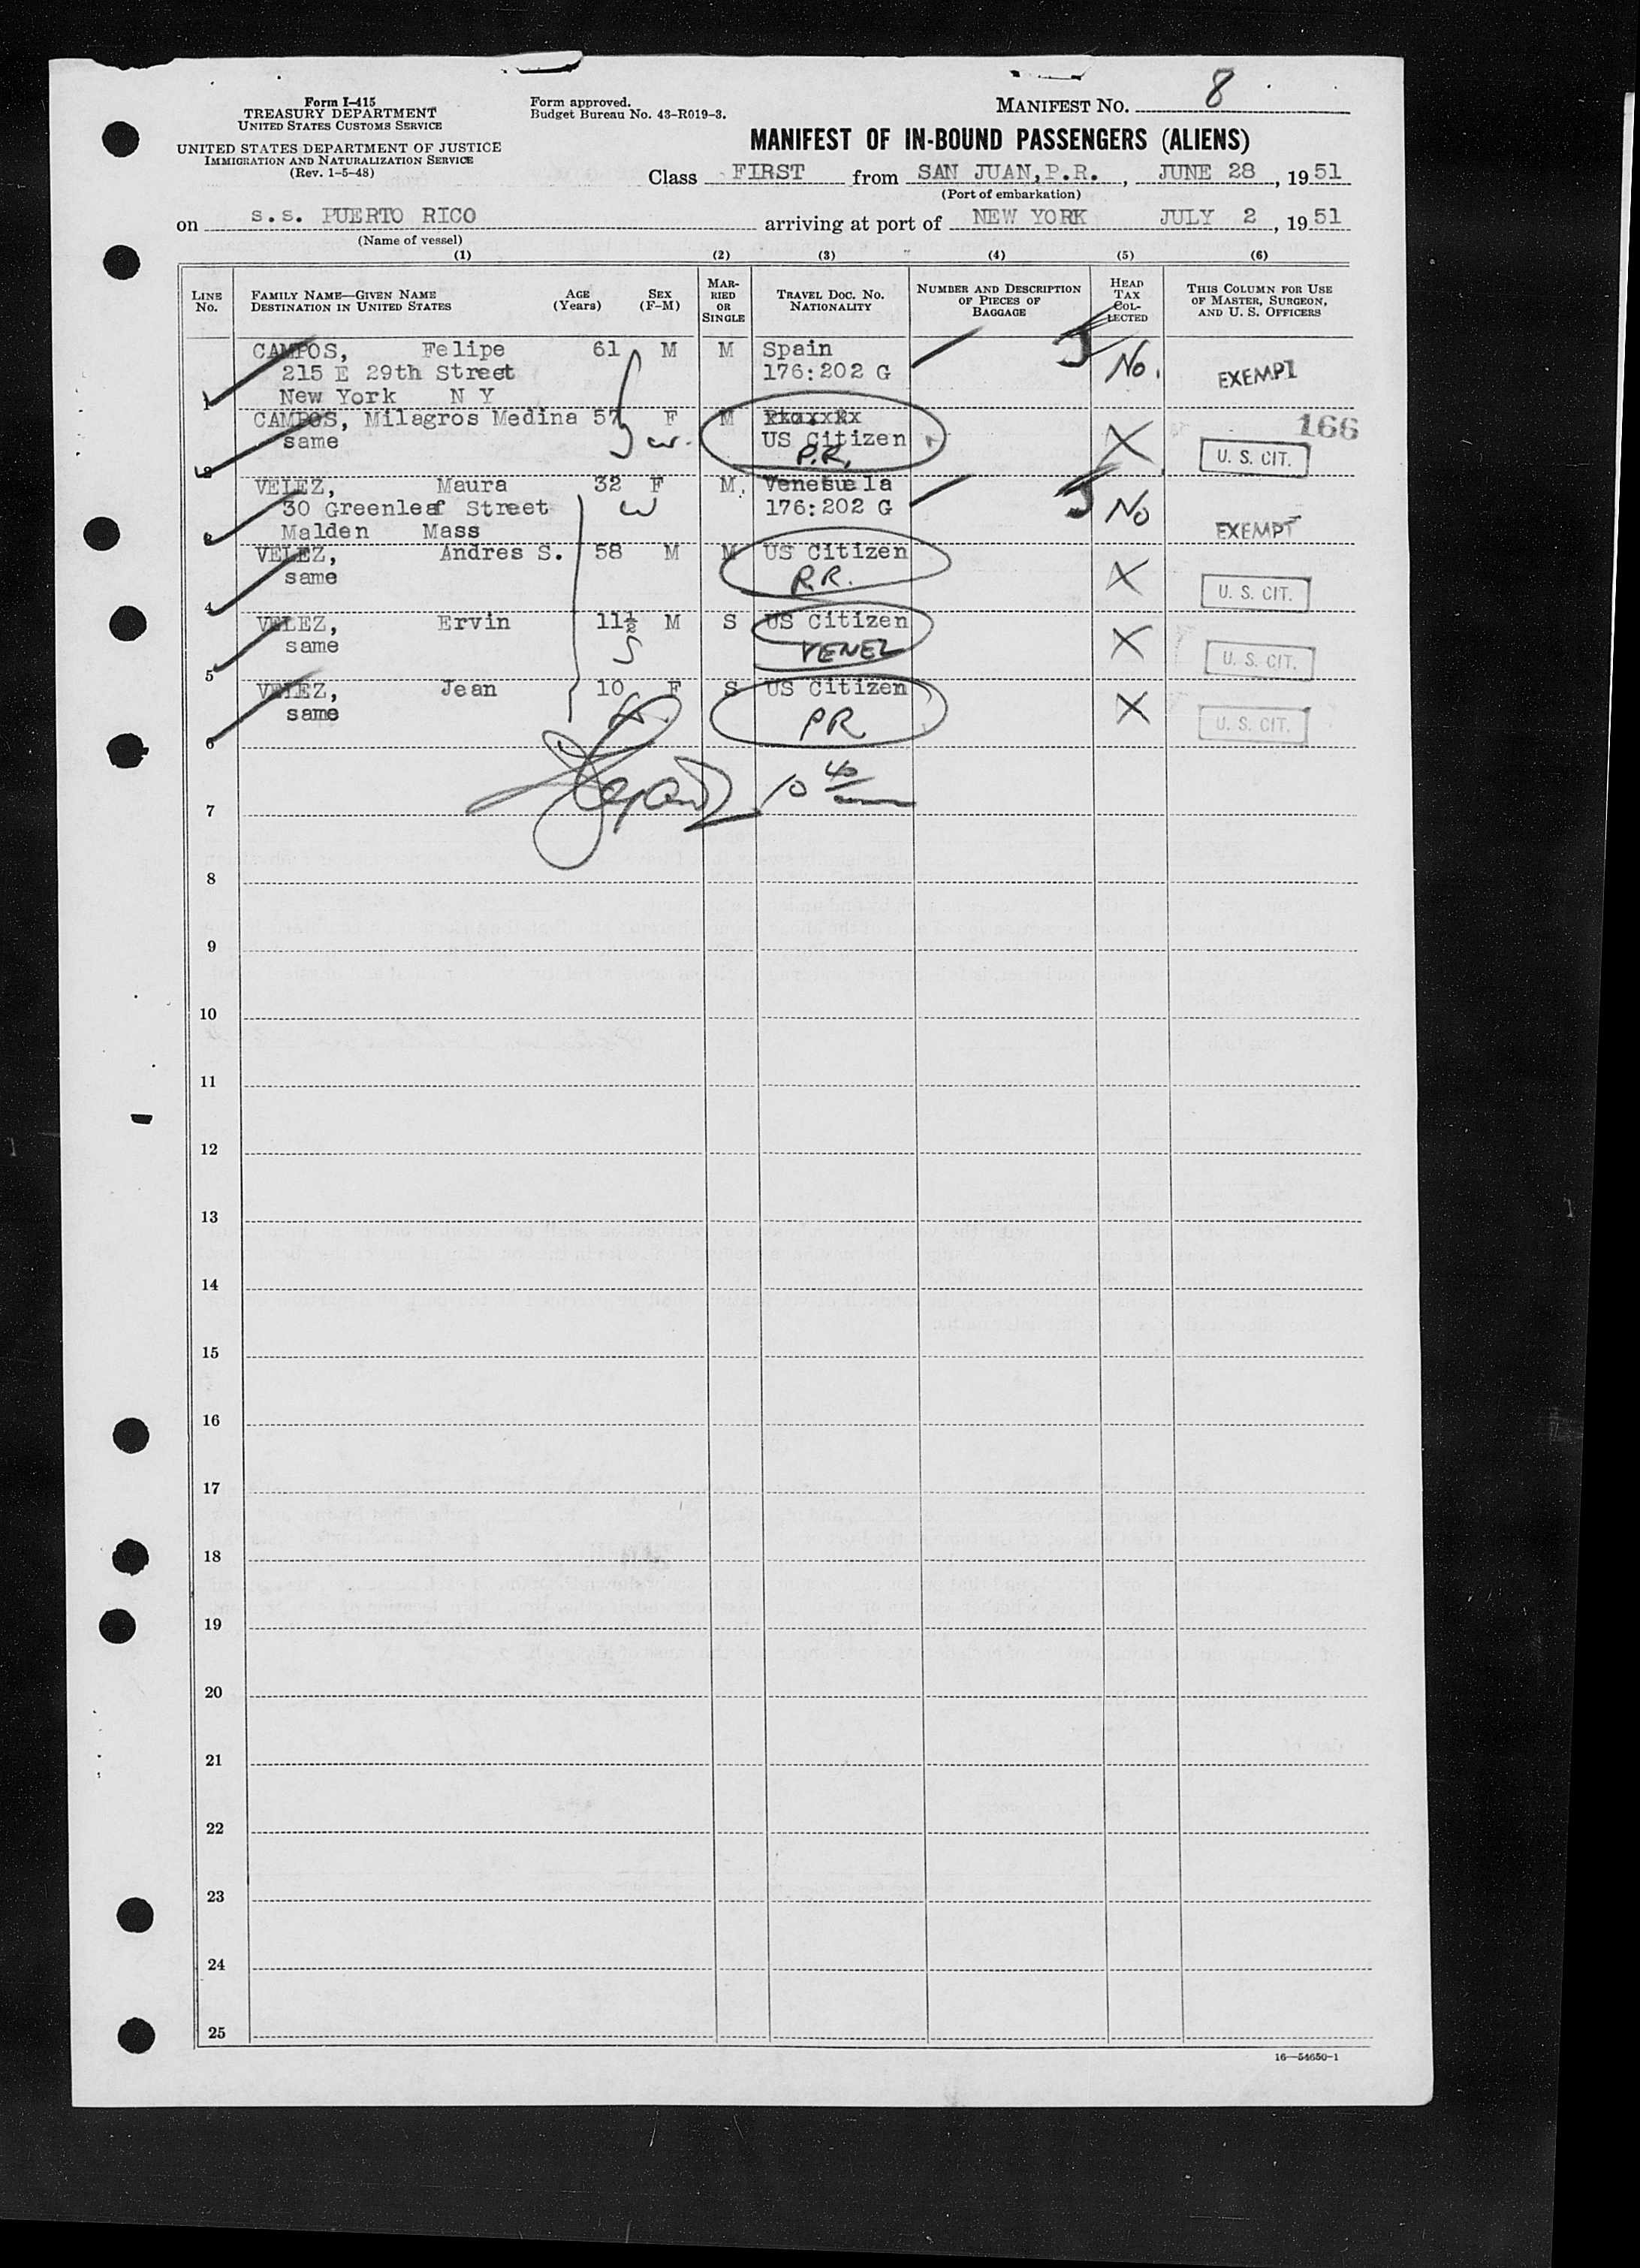 Form I-415
TREASURY DEPARTMENT
UNITED STATES CUSTOMS SERVICE
UNITED STATES DEPARTMENT OF JUSTICE
IMMIGRATION AND NATURALIZATION SERVICE
(Rev. 1-5-48)
Form approved.
Budget Bureau No. 43-R019-3.
MANIFEST NO. 8
MANIFEST OF IN-BOUND PASSENGERS (ALIENS)
Class FIRST from SAN JUAN, P.R., JUNE 28, 1951
(Port of embarkation)
on s.s. PUERTO RICO arriving at port of NEW YORK JULY 2, 1951
(Name of vessel)
(1) (2) (3) (4) (5) (6)
LINE No. FAMILY NAME—GIVEN NAME DESTINATION IN UNITED STATES AGE (Years) SEX (F-M) MARRIED OR SINGLE TRAVEL DOC. NO. NATIONALITY NUMBER AND DESCRIPTION OF PIECES OF BAGGAGE HEAD TAX COLLECTED THIS COLUMN FOR USE OF MASTER, SURGEON, AND U. S. OFFICERS
CAMPOS, Felipe 61 M M Spain
215 E 29th Street 176:202 G No. EXEMPT
1 New York N Y
CAMPOS, Milagros Medina 57 F M 166
same w. US Citizen X U. S. CIT.
2 P.R.
VELEZ, Maura 32 F M Venesuela
30 Greenleaf Street w 176:202 G No
Malden Mass EXEMPT
VELEZ, Andres S. 58 M M US Citizen
same P.R. X U. S. CIT.
4
VELEZ, Ervin 11½ M S US Citizen
same S VENEZ X U. S. CIT.
5
VELEZ, Jean 10 F S US Citizen
same PR X U. S. CIT.
6
10 40
7
8
9
10
11
12
13
14
15
16
17
18
19
20
21
22
23
24
25
16—54650-1